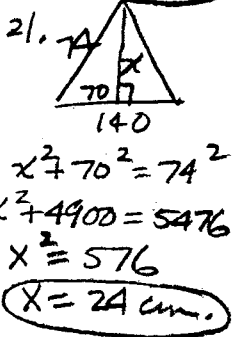 21.
74
x
70
140
x²+70²=74²
x²+4900=5476
x²=576
x=24 cm.